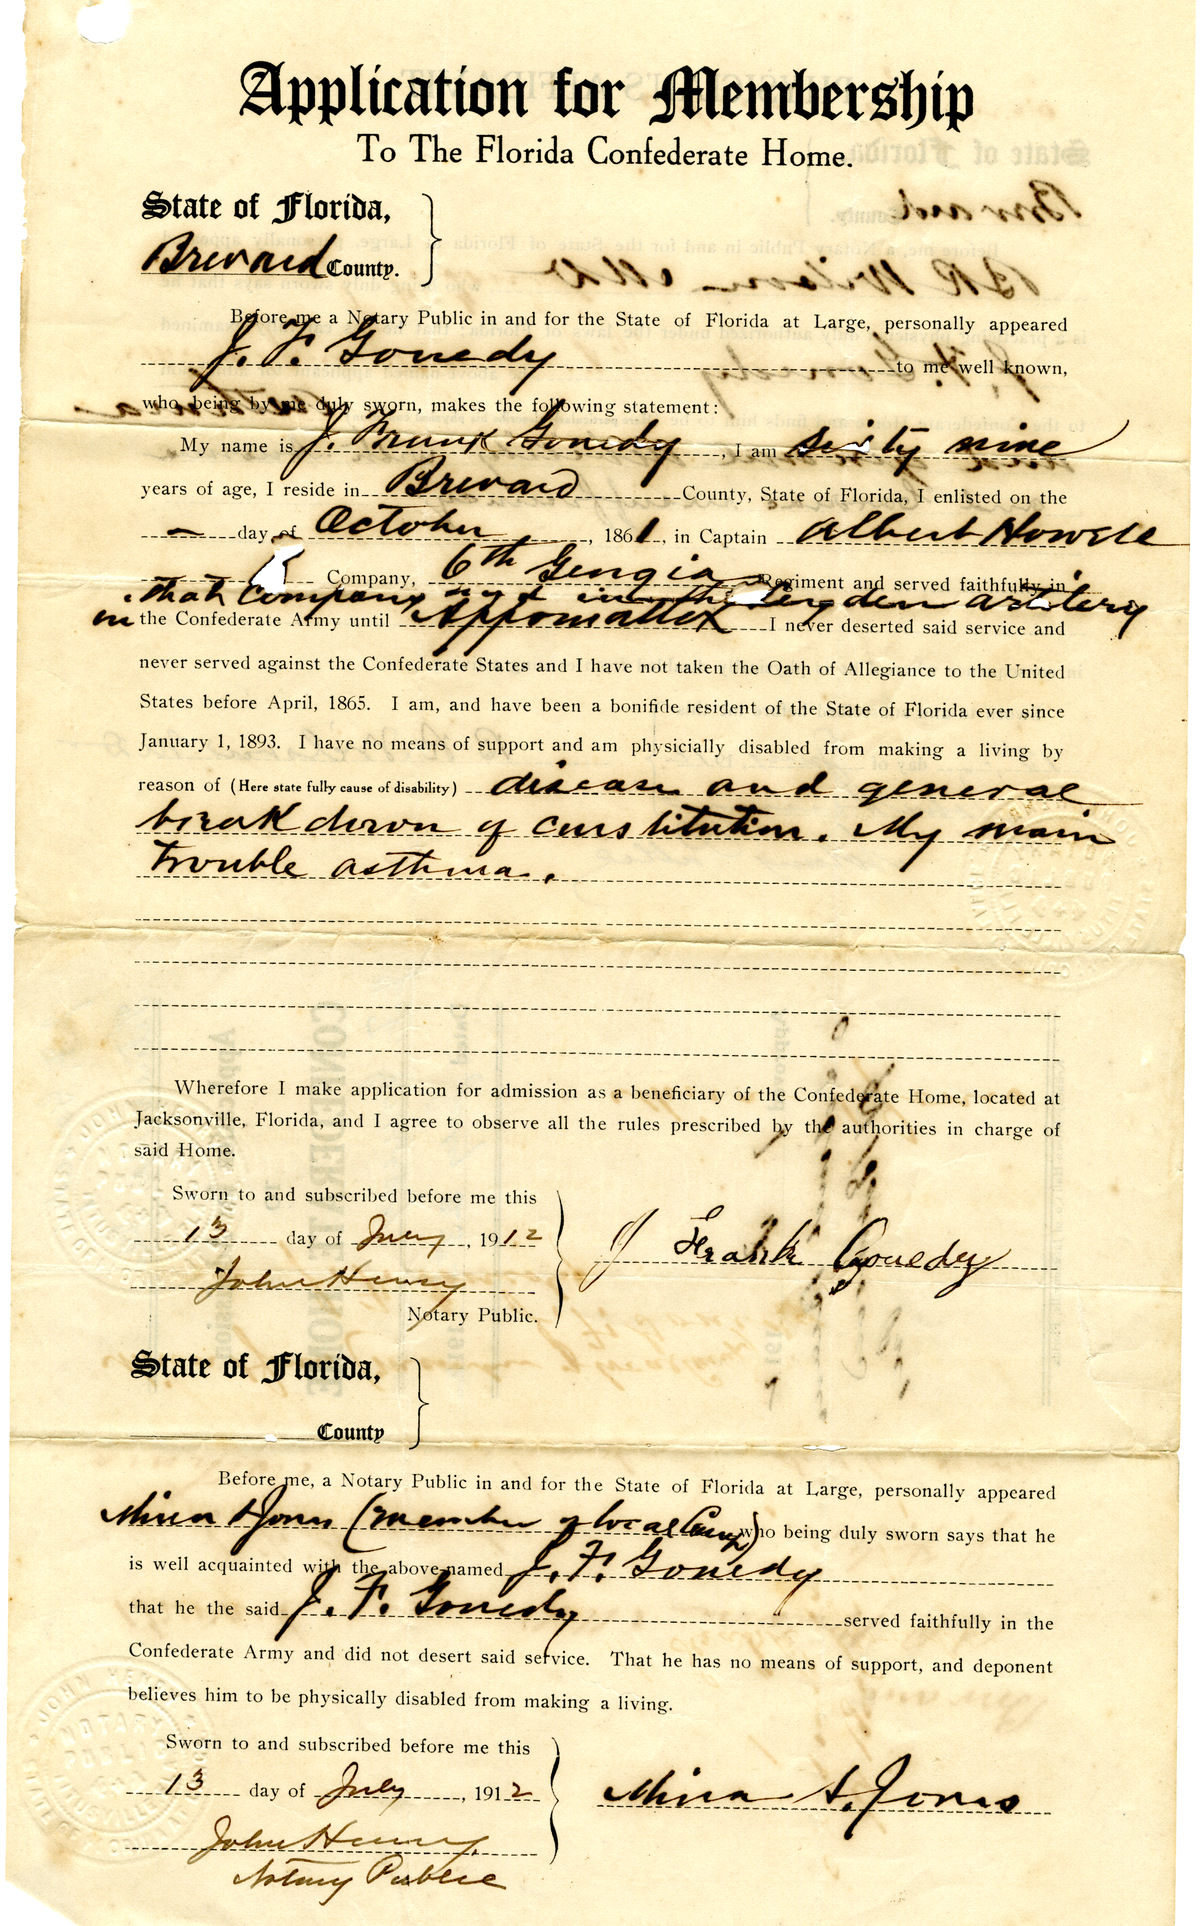 Application for Membership
To The Florida Confederate Home.
State of Florida,
Brevard County.
Before me a Notary Public in and for the State of Florida at Large, personally appeared
J. F. Gouedy to me well known,
who being by me duly sworn, makes the following statement:
My name is J. Frank Gouedy, I am sixty nine
years of age, I reside in Brevard County, State of Florida, I enlisted on the
— day of October, 1861, in Captain Albert Howell
Company, 6th Georgia Regiment and served faithfully in
that company and in the artilery
in the Confederate Army until Appomattox I never deserted said service and
never served against the Confederate States and I have not taken the Oath of Allegiance to the United
States before April, 1865. I am, and have been a bonifide resident of the State of Florida ever since
January 1, 1893. I have no means of support and am physicially disabled from making a living by
reason of (Here state fully cause of disability) disease and general
break down of constitution. My main
trouble asthma.
Wherefore I make application for admission as a beneficiary of the Confederate Home, located at
Jacksonville, Florida, and I agree to observe all the rules prescribed by the authorities in charge of
said Home.
Sworn to and subscribed before me this
13 day of July, 1912
J Frank Gouedy
John Henry
Notary Public.
State of Florida,
County
Before me, a Notary Public in and for the State of Florida at Large, personally appeared
Jones (member of local Camp) who being duly sworn says that he
is well acquainted with the above named J. F. Gouedy
that he the said J. F. Gouedy served faithfully in the
Confederate Army and did not desert said service. That he has no means of support, and deponent
believes him to be physically disabled from making a living.
Sworn to and subscribed before me this
13 day of July, 1912
Jones
John Henry
Notary Public